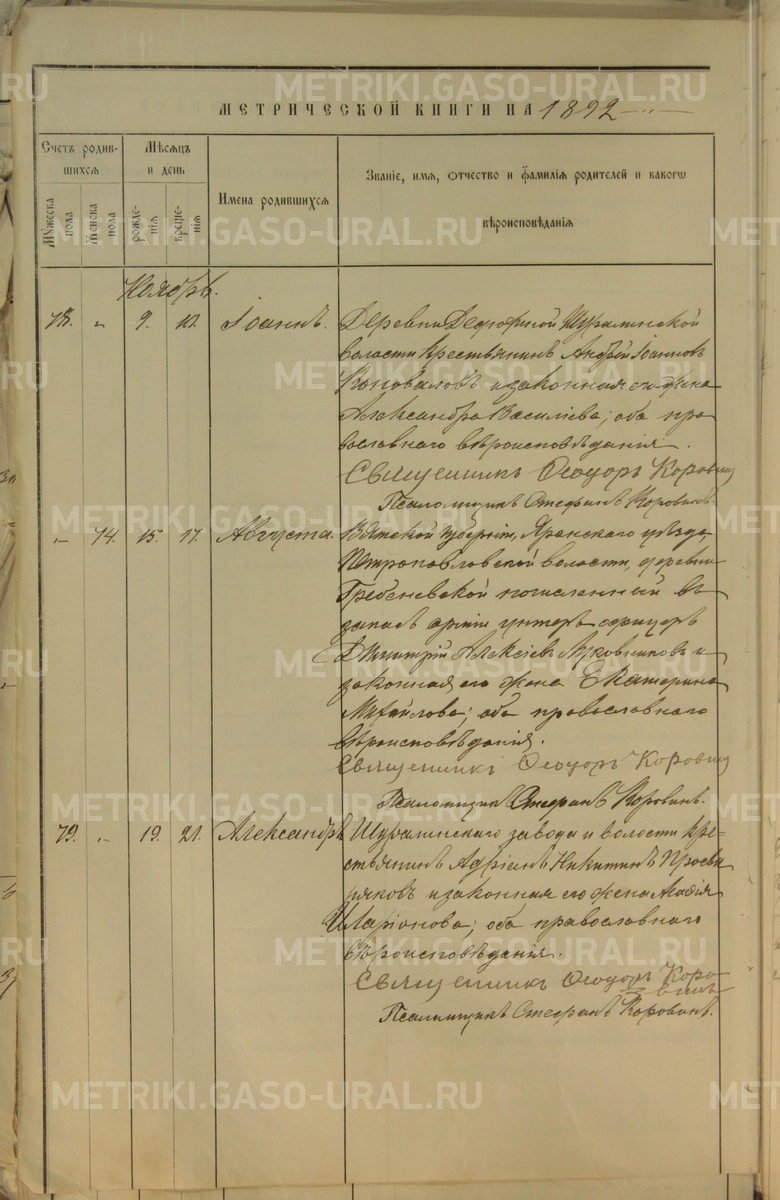 МЕТРИЧЕСКОЙ КНИГИ НА 1892
Счетъ родив-
шихся
Мѣсяцъ
и день
Имена родившихся
Званіе, имя, отчество и фамилія родителей и какогѡ
вѣроисповѣданія
Мужеска
пола
Женска
пола
рожде-
нія
креще-
нія
Ноябрь.
78. " 9. 10. Іоаннъ. Деревни Шуралинской
волости крестьянинъ Андрей Іоанновъ
Коноваловъ и законная его жена
Александра Василіева; оба пра
вославнаго вѣроисповѣданія.
Священникъ Ѳеодоръ Коровинъ
Псаломщикъ Стефанъ Коровинъ.
" 74. 15. 17. Августа. Вятской губерніи, Яранскаго уѣзда,
Петропавловской волости, деревни
Гребеневской зачисленный въ
запасъ арміи унтеръ офицеръ
Димитрій Алексѣевъ и
законная его жена Екатерина
Михайлова; оба православнаго
вѣроисповѣданія.
Священникъ Ѳеодоръ Коровинъ
Псаломщикъ Стефанъ Коровинъ.
79. " 19. 21. Александръ Шуралинскаго завода и волости кре-
стьянинъ Адріанъ Никитинъ Просви
ряковъ и законная его жена
Иларіонова; оба православнаго
вѣроисповѣданія.
Священникъ Ѳеодоръ Коро
винъ
Псаломщикъ Стефанъ Коровинъ.
METRIKI.GASO-URAL.RU